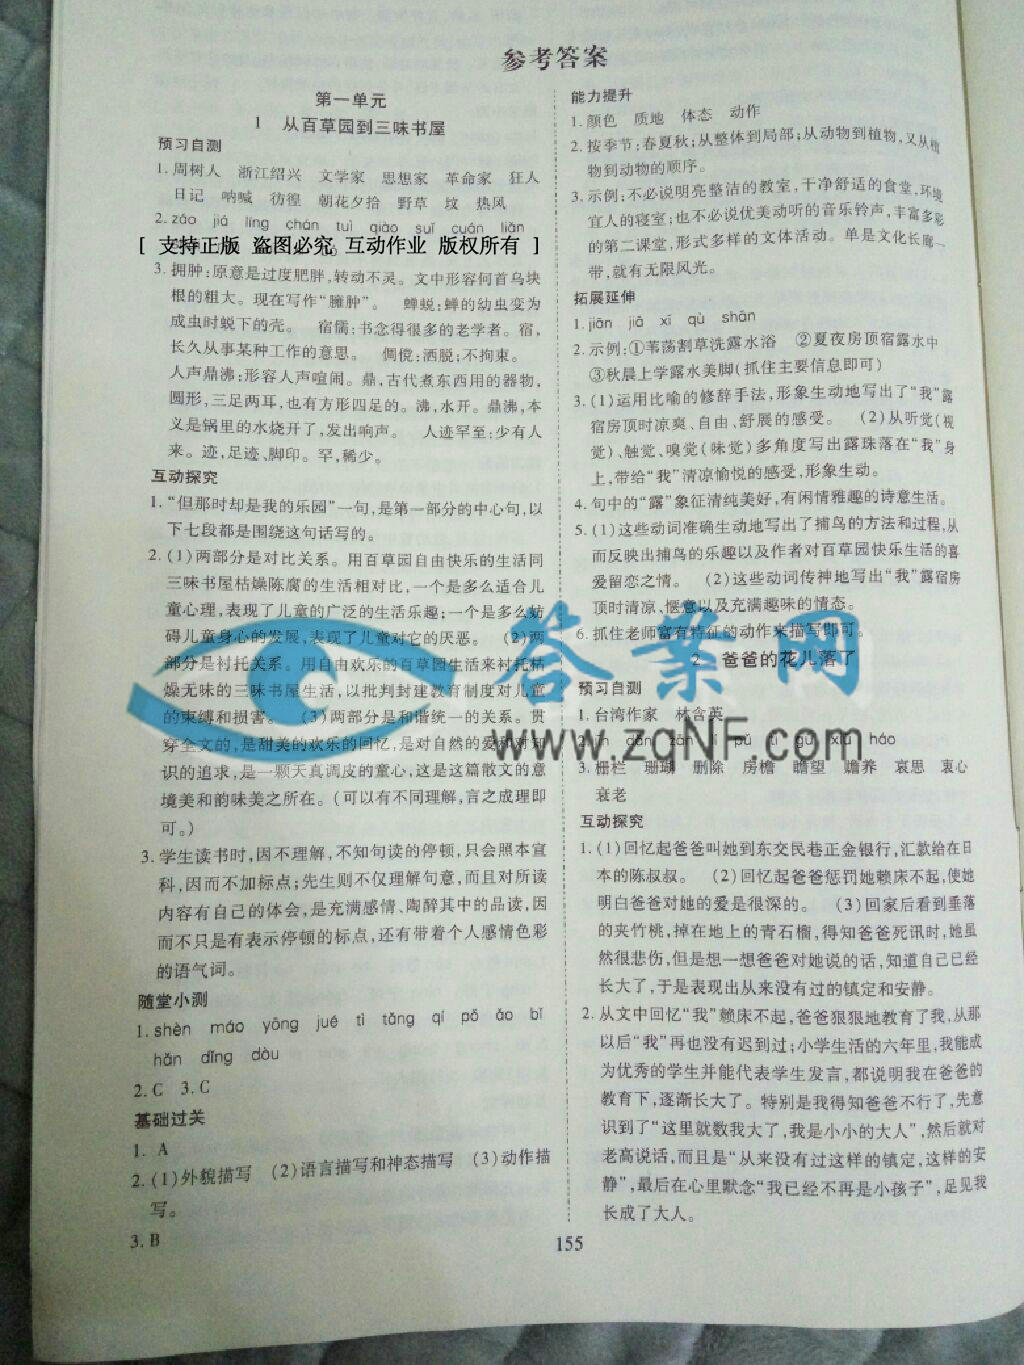 参考答案
第一单元
1 从百草园到三味书屋
预习自测
1. 周树人 浙江绍兴 文学家 思想家 革命家 狂人
日记 呐喊 彷徨 朝花夕拾 野草 坟 热风
2. zào jiá líng chán tuì qiào suī cuán liǎn
[ 支持正版 盗图必究 互动作业 版权所有 ]
3. 拥肿:原意是过度肥胖,转动不灵。文中形容何首乌块
根的粗大。现在写作“臃肿”。 蝉蜕:蝉的幼虫变为
成虫时蜕下的壳。 宿儒:书念得很多的老学者。宿,
长久从事某种工作的意思。 倜傥:洒脱;不拘束。
人声鼎沸:形容人声喧闹。鼎,古代煮东西用的器物,
圆形,三足两耳,也有方形四足的。沸,水开。鼎沸,本
义是锅里的水烧开了,发出响声。 人迹罕至:少有人
来。迹,足迹、脚印。罕,稀少。
互动探究
1. “但那时却是我的乐园”一句,是第一部分的中心句,以
下七段都是围绕这句话写的。
2. (1)两部分是对比关系。用百草园自由快乐的生活同
三味书屋枯燥陈腐的生活相对比,一个是多么适合儿
童心理,表现了儿童的广泛的生活乐趣;一个是多么妨
碍儿童身心的发展,表现了儿童对它的厌恶。 (2)两
部分是衬托关系。用自由欢乐的百草园生活来衬托枯
燥无味的三味书屋生活,以批判封建教育制度对儿童
的束缚和损害。 (3)两部分是和谐统一的关系。贯
穿全文的,是甜美的欢乐的回忆,是对自然的爱和对知
识的追求,是一颗天真调皮的童心,这是这篇散文的意
境美和韵味美之所在。(可以有不同理解,言之成理即
可。)
3. 学生读书时,因不理解,不知句读的停顿,只会照本宣
科,因而不加标点;先生则不仅理解句意,而且对所读
内容有自己的体会,是充满感情、陶醉其中的品读,因
而不只是有表示停顿的标点,还有带着个人感情色彩
的语气词。
随堂小测
1. shèn máo yōng jué tì tǎng qí pō ào bī
hǎn dǐng dòu
2. C 3. C
基础过关
1. A
2. (1)外貌描写 (2)语言描写和神态描写 (3)动作描
写。
3. B
能力提升
1. 颜色 质地 体态 动作
2. 按季节:春夏秋;从整体到局部;从动物到植物,又从植
物到动物的顺序。
3. 示例:不必说明亮整洁的教室,干净舒适的食堂,环境
宜人的寝室;也不必说优美动听的音乐铃声,丰富多彩
的第二课堂,形式多样的文体活动。单是文化长廊一
带,就有无限风光。
拓展延伸
1. jiān jiā xī qù shān
2. 示例:①苇荡割草洗露水浴 ②夏夜房顶宿露水中
③秋晨上学露水美脚(抓住主要信息即可)
3. (1)运用比喻的修辞手法,形象生动地写出了“我”露
宿房顶时凉爽、自由、舒展的感受。 (2)从听觉(视
觉)、触觉、嗅觉(味觉)多角度写出露珠落在“我”身
上,带给“我”清凉愉悦的感受,形象生动。
4. 句中的“露”象征清纯美好,有闲情雅趣的诗意生活。
5. (1)这些动词准确生动地写出了捕鸟的方法和过程,从
而反映出捕鸟的乐趣以及作者对百草园快乐生活的喜
爱留恋之情。 (2)这些动词传神地写出“我”露宿房
顶时清凉、惬意以及充满趣味的情态。
6. 抓住老师富有特征的动作来描写即可。
2 爸爸的花儿落了
预习自测
1. 台湾作家 林含英
3. 栅栏 珊瑚 删除 房檐 瞻望 赡养 哀思 衷心
衰老
互动探究
1. (1)回忆起爸爸叫她到东交民巷正金银行,汇款给在日
本的陈叔叔。 (2)回忆起爸爸惩罚她赖床不起,使她
明白爸爸对她的爱是很深的。 (3)回家后看到垂落
的夹竹桃,掉在地上的青石榴,得知爸爸死讯时,她虽
然很悲伤,但是想一想爸爸对她说的话,知道自己已经
长大了,于是表现出从来没有过的镇定和安静。
2. 从文中回忆“我”赖床不起,爸爸狠狠地教育了我,从那
以后“我”再也没有迟到过;小学生活的六年里,我能成
为优秀的学生并能代表学生发言,都说明我在爸爸的
教育下,逐渐长大了。特别是我得知爸爸不行了,先意
识到了“这里就数我大了,我是小小的大人”,然后就对
老高说话,而且是“从来没有过这样的镇定,这样的安
静”,最后在心里默念“我已经不再是小孩子”,足见我
长成了大人。
155
答案网
www.zqNF.com